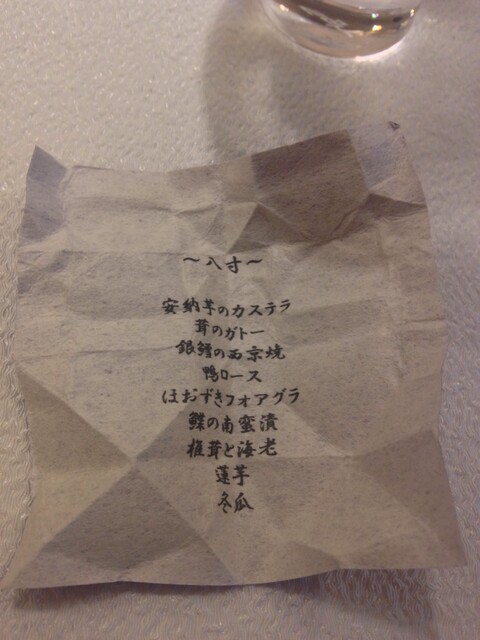 ～八寸～
安納芋のカステラ
茸のガトー
銀鱈の西京焼
鴨ロース
ほおずきフォアグラ
鰈の南蛮漬
椎茸と海老
蓮芋
冬瓜